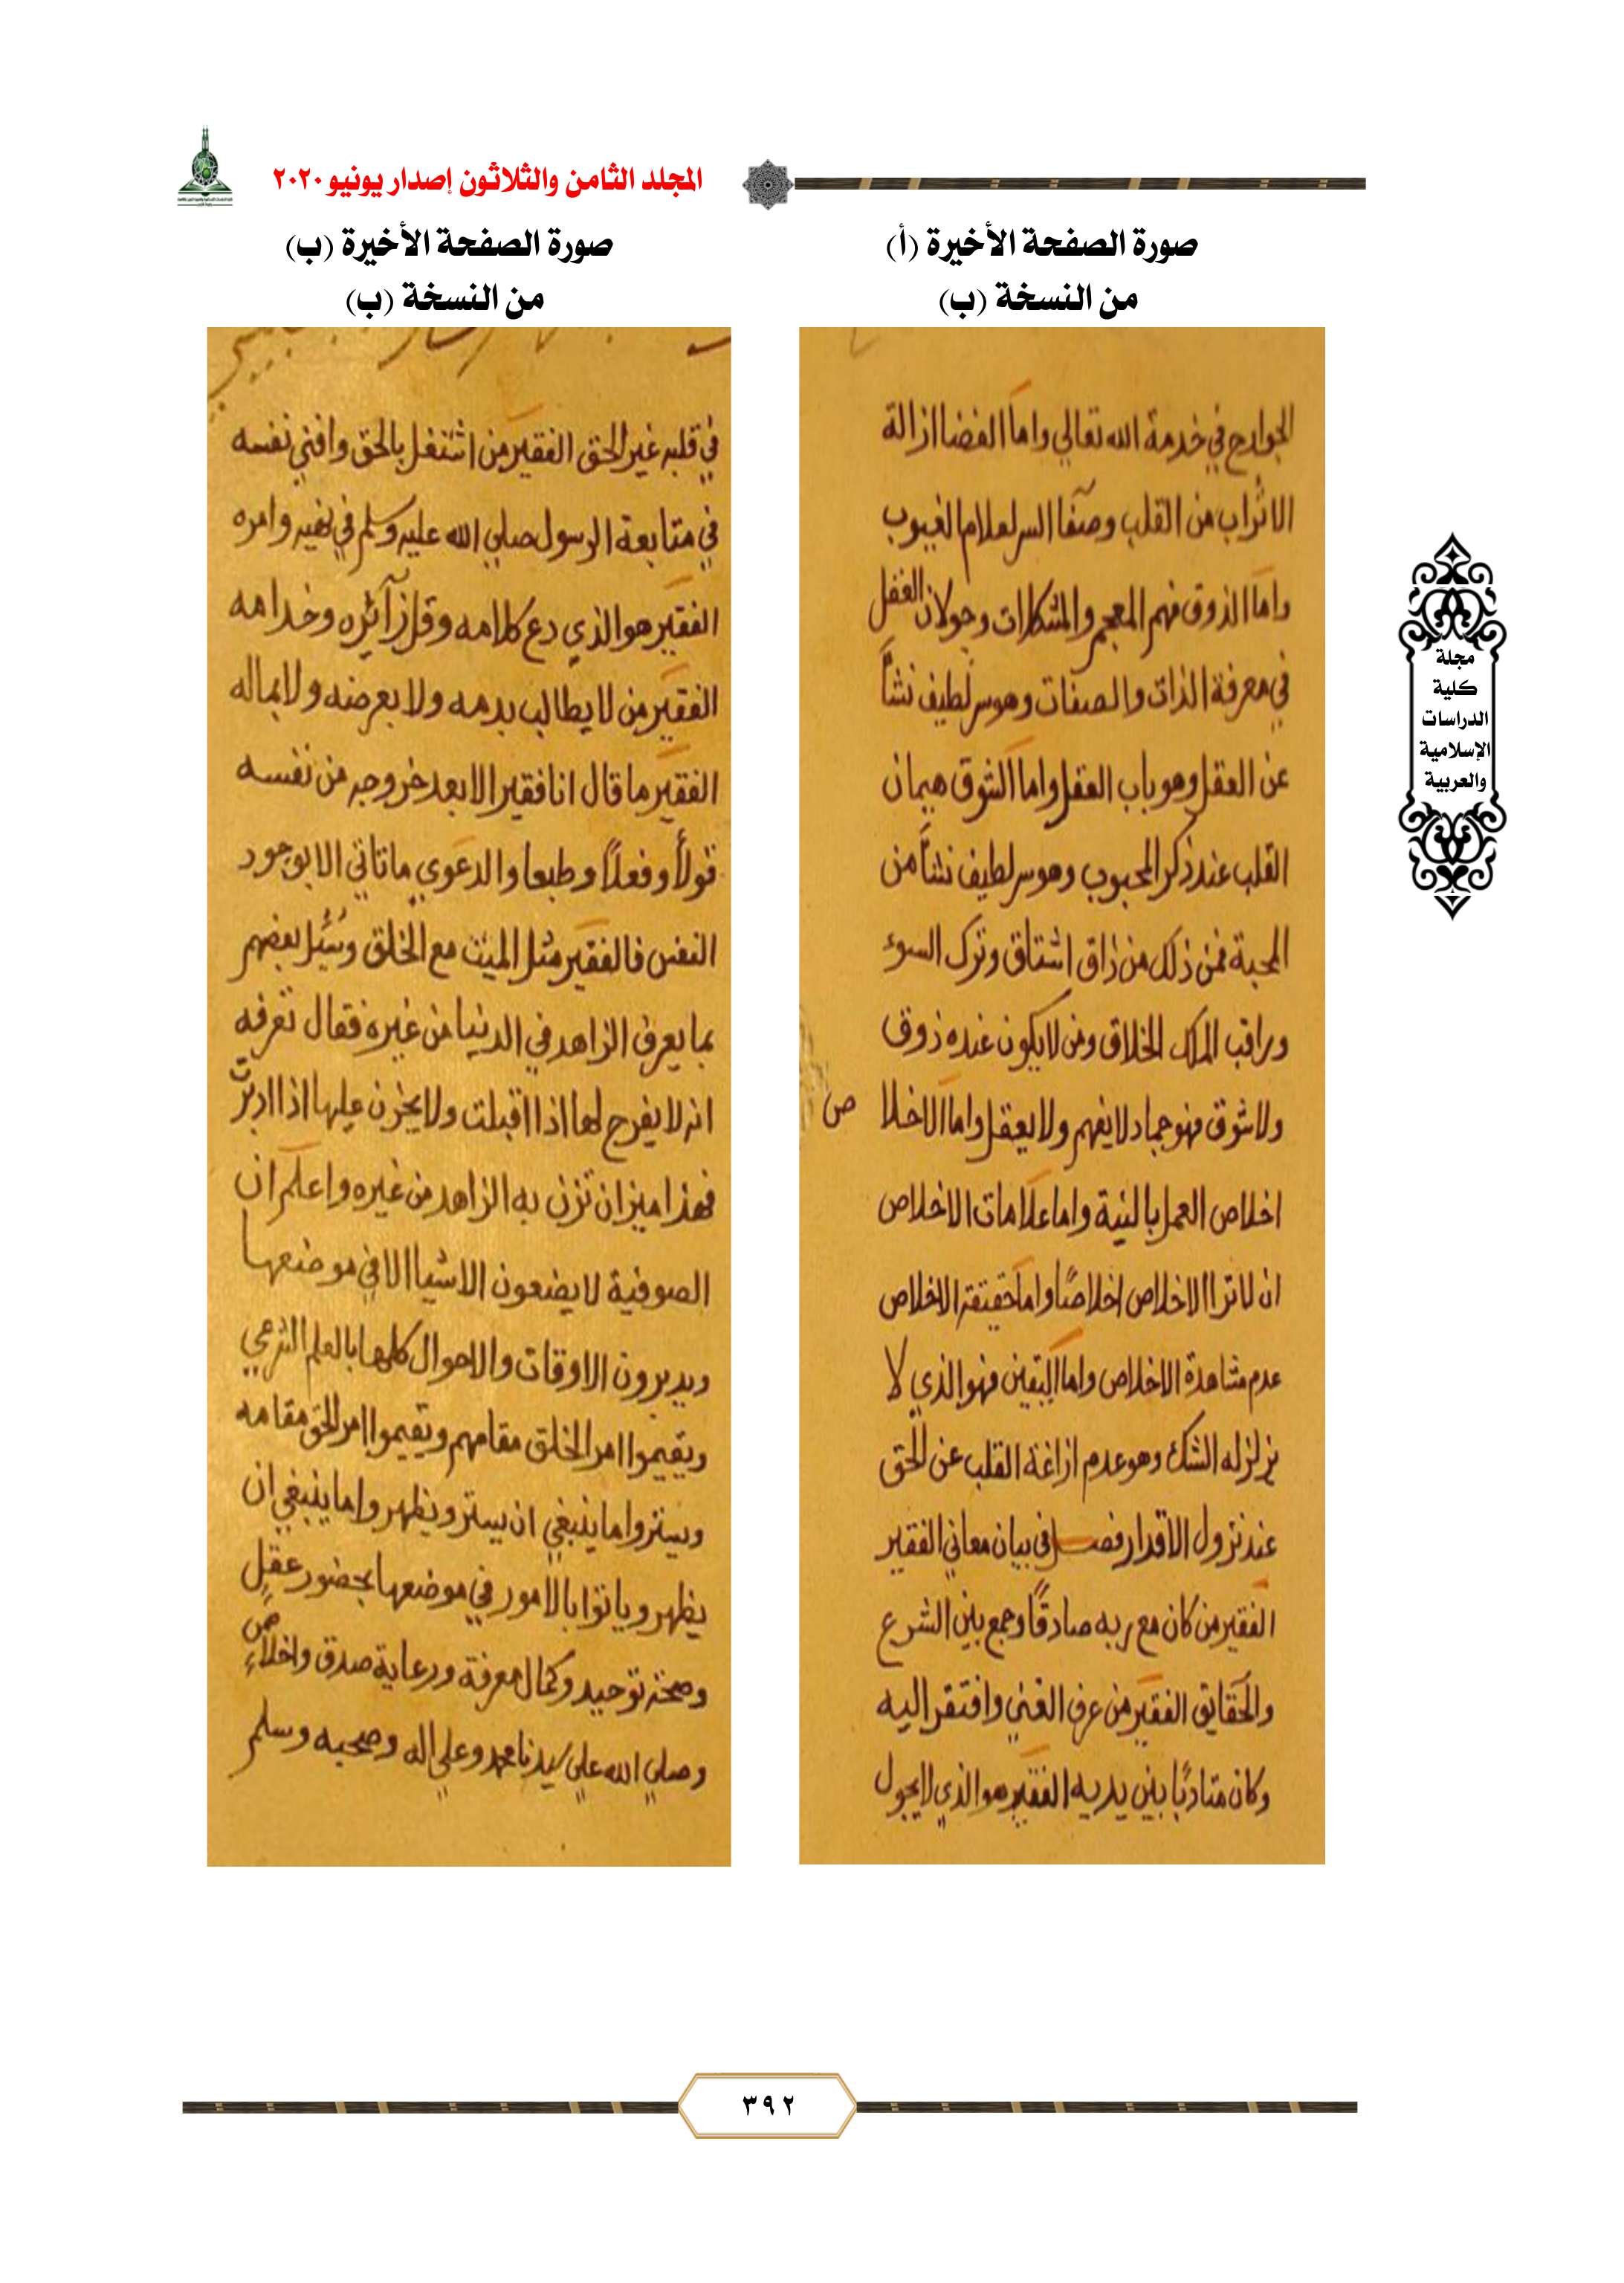 المجلد الثامن والثلاثون إصدار يونيو ٢٠٢٠
صورة الصفحة الأخيرة (أ)
من النسخة (ب)
الجوارح في خدمة الله تعالي واما الفضا ازالة
الاتراب من القلب وصفا السر لعلام الغيوب
واما الذوق فهم المعجم والمشكلات وجولان العقل
في معرفة الذات والصفات وهو سر لطيف نشأ
عن العقل وهو باب العقل واما الشوق هيمان
القلب عند ذكر المحبوب وهو سر لطيف نشأ من
المحبة فمن ذلك من ذاق اشتاق وترك السوء
وراقب الملك الخلاق ومن لا يكون عنده ذوق
ولا شوق فهو جماد لا يفهم ولا يعقل واما الاخلا ص
اخلاص العمل بالنية واما علامات الاخلاص
ان لا ترا الاخلاص اخلاصًا واما حقيقة الاخلاص
عدم مشاهدة الاخلاص واما اليقين فهو الذي لا
يزلزله الشك وهو عدم ازاغة القلب عن الحق
عند نزول الاقدار فصل في بيان معاني الفقير
الفقير من كان مع ربه صادقًا وجمع بين الشرع
والحقايق الفقير من عرف الغني وافتقر اليه
وكان متادبًا بين يديه الفقير هو الذي لا يجول
صورة الصفحة الأخيرة (ب)
من النسخة (ب)
في قلبه غير الحق الفقير من اشتغل بالحق وافني نفسه
في متابعة الرسول صلي الله عليه وسلم في نهيه وامره
الفقير هو الذي دع كلامه وقل زآئره وخدامه
الفقير من لا يطالب بدمه ولا بعرضه ولا بماله
الفقير ما قال انا فقير الا بعد خروجه من نفسه
قولًا وفعلًا وطبعا والدعوي ما تاتي الا بوجود
النفس فالفقير مثل الميت مع الخلق وسُئِل بعضهم
بما يعرف الزاهد في الدنيا من غيره فقال تعرفه
انه لا يفرح لها اذا اقبلت ولا يحزن عليها اذا ادبرت
فهذا ميزان تزن به الزاهد من غيره واعلم ان
الصوفية لا يضعون الاشيا الا في موضعها
ويديرون الاوقات والاحوال كلها بالعلم الشرعي
ويقيموا امر الخلق مقامهم ويقيموا امر الحق مقامه
ويستروا ما ينبغي ان يستر ويظهروا ما ينبغي ان
يظهر وياتوا بالامور في موضعها بحضور عقل
وصحة توحيد وكمال معرفة ورعاية صدق واخلاص
وصلي الله علي سيدنا محمد وعلي اله وصحبه وسلم
مجلة
كلية
الدراسات
الإسلامية
والعربية
٣٩٢